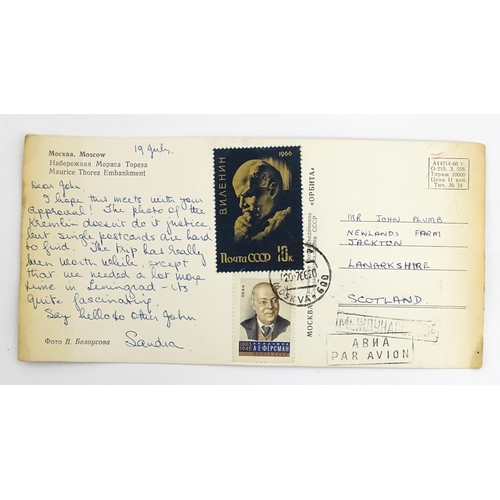 19 July.
Москва. Moscow
Набережная Мориса Тореза
Maurice Thorez Embankment
Dear John,
I hope this meets with your
approval! The photo of the
Kremlin doesn't do it justice
but single postcards are hard
to find. The trip has really
been worth while, except
that we needed a lot more
time in Leningrad – its
quite fascinating.
Say hello to other John
Sandra.
Фото В. Белоусова
1966
В.И.ЛЕНИН
ПОЧТА СССР 10к
1883
1945
А.Е.ФЕРСМАН
MOSKVA 600
МОСКВА
СССР «ОРБИТА»
О-215. З. 528.
Тираж 10000
Цена 11 коп.
Тип. № 24
MR JOHN PLUMB
NEWLANDS FARM
JACKTON
LANARKSHIRE
SCOTLAND
МЕЖДУНАРОДНОЕ
АВИА
PAR AVION